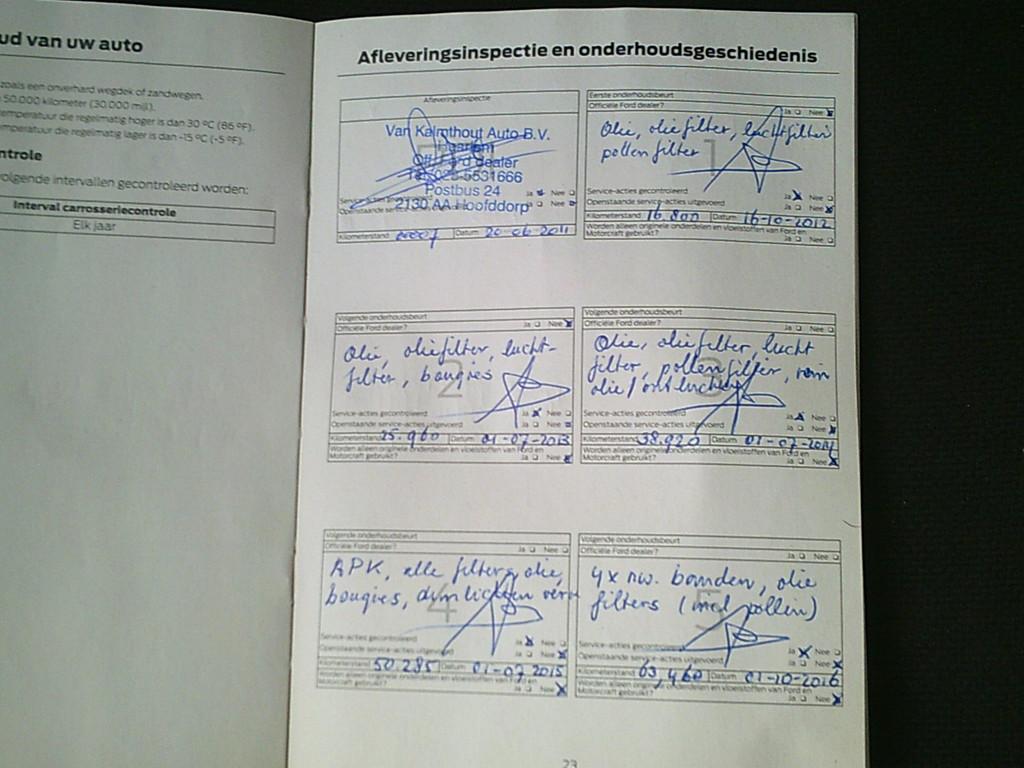 ud van uw auto
zoals een onverhard wegdek of zandwegen.
50.000 kilometer (30.000 mijl).
temperatuur die regelmatig hoger is dan 30 ºC (86 ºF).
mperatuur die regelmatig lager is dan -15 ºC (-5 ºF).
ntrole
volgende intervallen gecontroleerd worden:
Interval carrosseriecontrole
Elk jaar
Afleveringsinspectie en onderhoudsgeschiedenis
Afleveringsinspectie
Van Kalmthout Auto B.V.
Haarlem
Off. Ford dealer
Tel. 023-5531666
Postbus 24
2130 AA Hoofddorp
Ja Nee
Ja Nee
Kilometerstand Datum 20-06-2011
Eerste onderhoudsbeurt
Officiële Ford dealer? Ja Nee
Olie, oliefilter, luchtfilter
pollenfilter
1
Service-acties gecontroleerd Ja Nee
Openstaande service-acties uitgevoerd Ja Nee
Kilometerstand 16.800 Datum 16-10-2012
Worden alleen originele onderdelen en vloeistoffen van Ford en
Motorcraft gebruikt? Ja Nee
Volgende onderhoudsbeurt
Officiële Ford dealer? Ja Nee
Olie, oliefilter, lucht-
filter, bougies
2
Service-acties gecontroleerd Ja Nee
Openstaande service-acties uitgevoerd Ja Nee
Kilometerstand 25.960 Datum 01-07-2013
Worden alleen originele onderdelen en vloeistoffen van Ford en
Motorcraft gebruikt? Ja Nee
Volgende onderhoudsbeurt
Officiële Ford dealer? Ja Nee
Olie, oliefilter, lucht
filter, pollenfilter, rem
olie/ontluchten
3
Service-acties gecontroleerd Ja Nee
Openstaande service-acties uitgevoerd Ja Nee
Kilometerstand 38.920 Datum 01-07-2014
Worden alleen originele onderdelen en vloeistoffen van Ford en
Motorcraft gebruikt? Ja Nee
Volgende onderhoudsbeurt
Officiële Ford dealer? Ja Nee
APK, alle filters, olie,
bougies, dimlichten verv
4
Service-acties gecontroleerd Ja Nee
Openstaande service-acties uitgevoerd Ja Nee
Kilometerstand 50.285 Datum 01-07-2015
Worden alleen originele onderdelen en vloeistoffen van Ford en
Motorcraft gebruikt? Ja Nee
Volgende onderhoudsbeurt
Officiële Ford dealer? Ja Nee
4x nw. banden, olie
filters (incl pollen)
5
Service-acties gecontroleerd Ja Nee
Openstaande service-acties uitgevoerd Ja Nee
Kilometerstand 63,460 Datum 01-10-2016
Worden alleen originele onderdelen en vloeistoffen van Ford en
Motorcraft gebruikt? Ja Nee
23